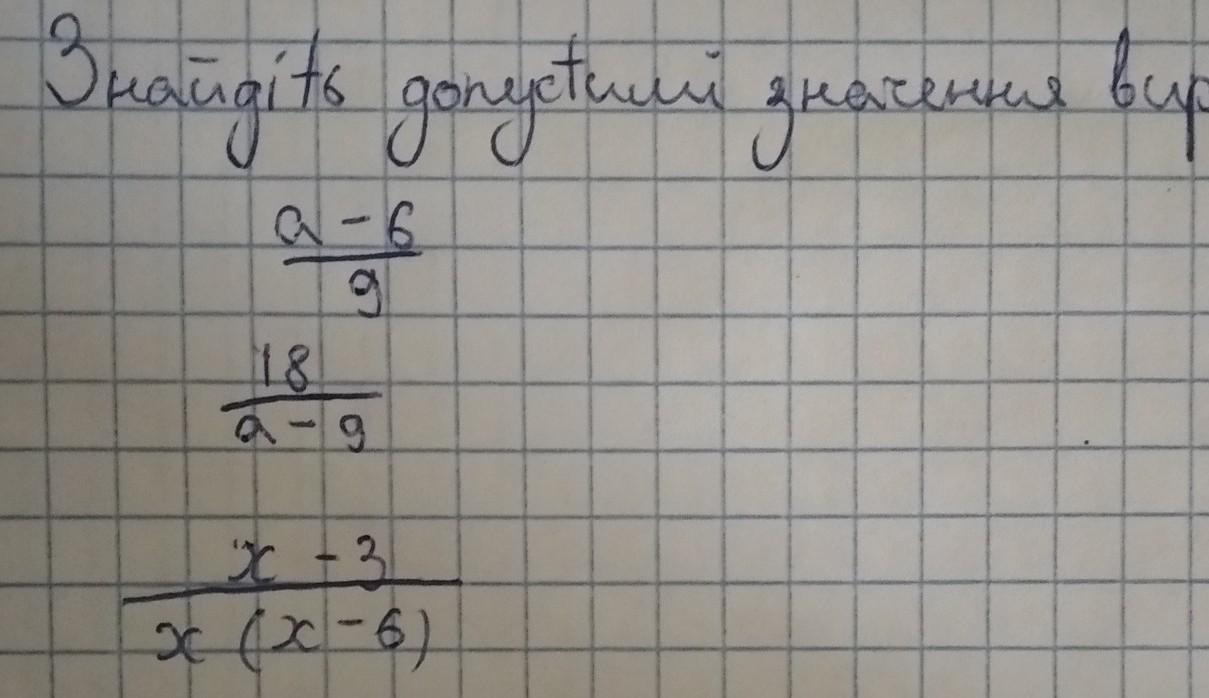 Знайдіть допустимі значення вир
a - 6
9
18
a - 9
x - 3
x (x - 6)